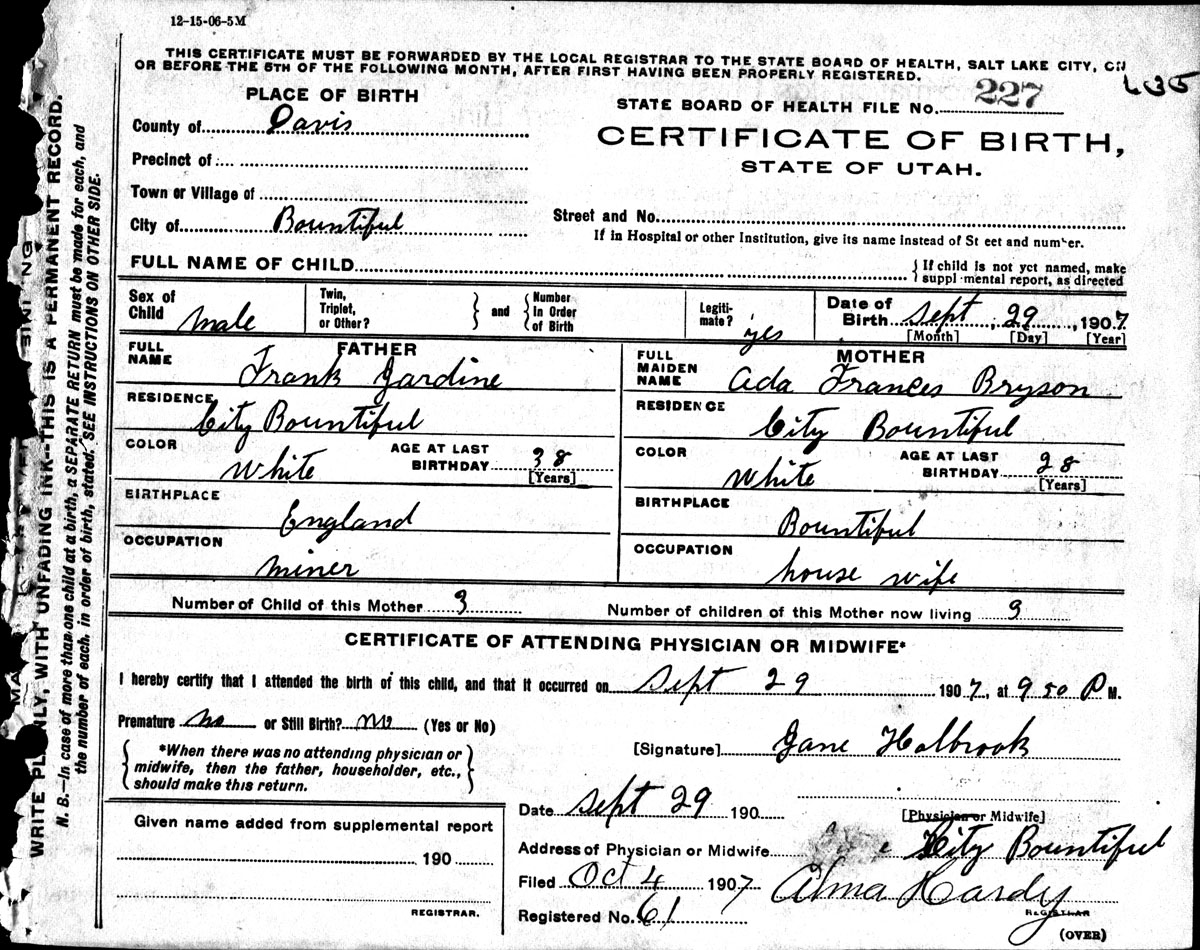 12-15-06-5M
THIS CERTIFICATE MUST BE FORWARDED BY THE LOCAL REGISTRAR TO THE STATE BOARD OF HEALTH, SALT LAKE CITY, ON
OR BEFORE THE 5TH OF THE FOLLOWING MONTH, AFTER FIRST HAVING BEEN PROPERLY REGISTERED.
PLACE OF BIRTH
STATE BOARD OF HEALTH FILE No. 227
County of Davis
CERTIFICATE OF BIRTH,
Precinct of
STATE OF UTAH.
Town or Village of
City of Bountiful
Street and No.
If in Hospital or other Institution, give its name instead of St eet and number.
FULL NAME OF CHILD
{ If child is not yet named, make
suppl mental report, as directed
Sex of Child male
Twin, Triplet, or Other? } and { Number In Order of Birth
Legiti-mate? yes
Date of Birth Sept, 29, 1907
[Month] [Day] [Year]
FATHER
FULL NAME Frank Jardine
RESIDENCE City Bountiful
COLOR White AGE AT LAST BIRTHDAY 38 [Years]
BIRTHPLACE England
OCCUPATION miner
MOTHER
FULL MAIDEN NAME Ada Frances Bryson
RESIDENCE City Bountiful
COLOR White AGE AT LAST BIRTHDAY 28 [Years]
BIRTHPLACE Bountiful
OCCUPATION house wife
Number of Child of this Mother 3 Number of children of this Mother now living 3
CERTIFICATE OF ATTENDING PHYSICIAN OR MIDWIFE*
I hereby certify that I attended the birth of this child, and that it occurred on Sept 29 1907, at 9 50 P M.
Premature no or Still Birth? no (Yes or No)
{ *When there was no attending physician or
midwife, then the father, householder, etc.,
should make this return. }
[Signature] Jane Holbrook
Date Sept 29 190
[Physician or Midwife]
Given name added from supplemental report
190
REGISTRAR.
Address of Physician or Midwife City Bountiful
Filed Oct 4 1907 Alma Hardy
REGISTRAR
Registered No. 61
(OVER)
WRITE PLAINLY, WITH UNFADING INK--THIS IS A PERMANENT RECORD.
N. B.—In case of more than one child at a birth, a SEPARATE RETURN must be made for each, and
the number of each, in order of birth, stated. SEE INSTRUCTIONS ON OTHER SIDE.